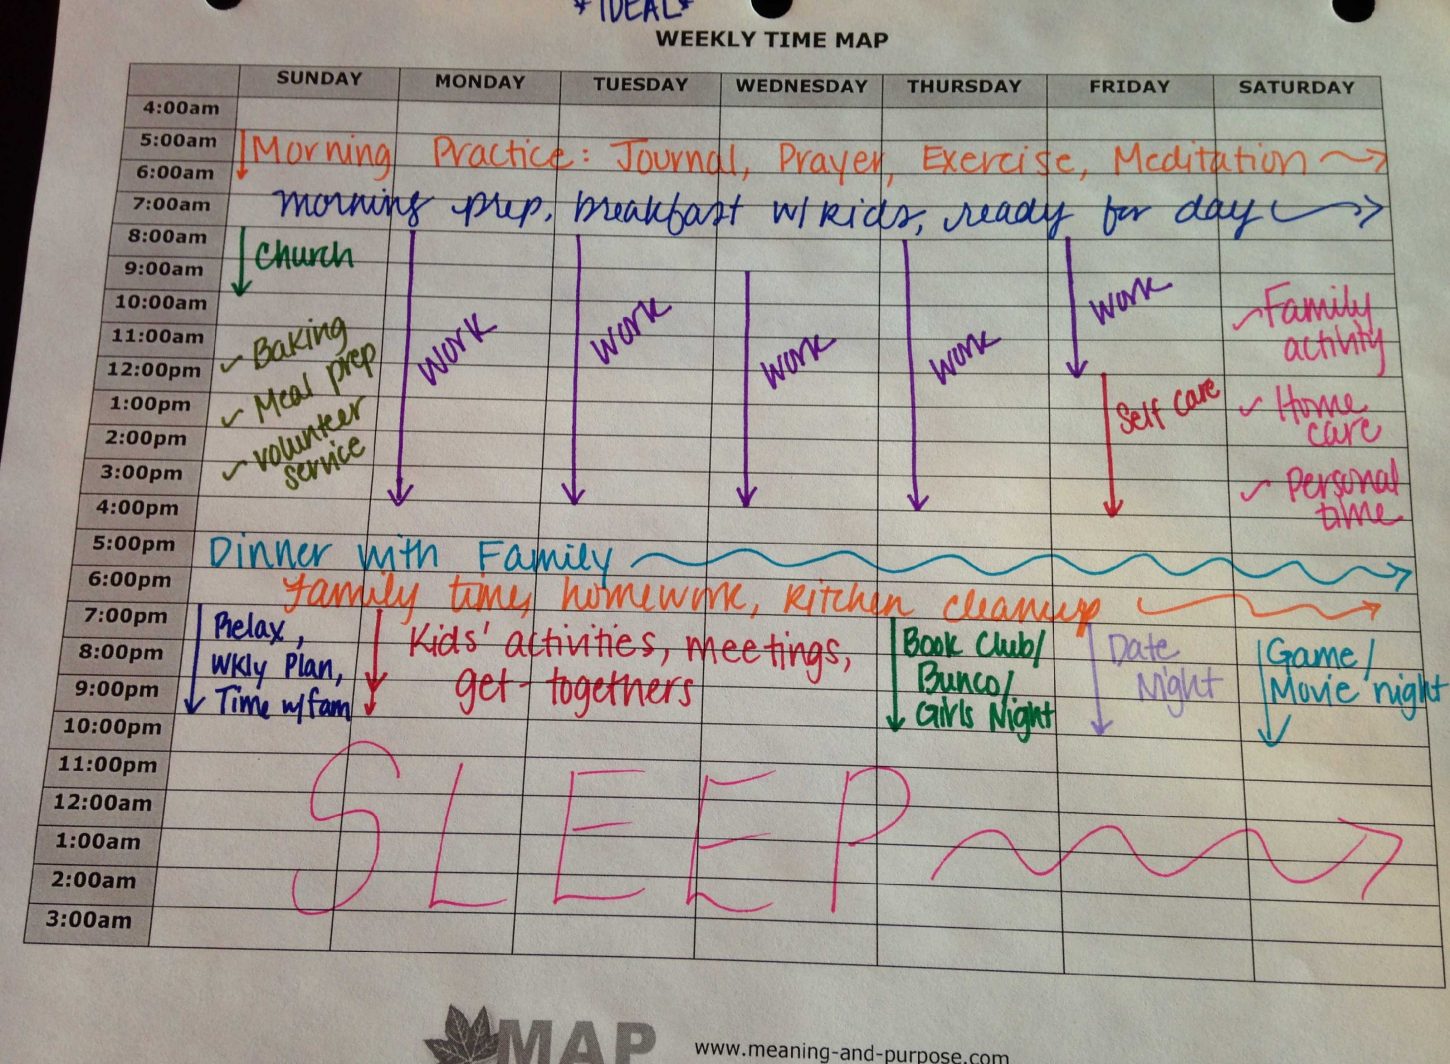 *IDEAL*
WEEKLY TIME MAP
SUNDAY MONDAY TUESDAY WEDNESDAY THURSDAY FRIDAY SATURDAY
4:00am
5:00am
Morning Practice: Journal, Prayer, Exercise, Meditation
6:00am
7:00am
morning prep, breakfast w/ kids, ready for day
8:00am
Church
9:00am
10:00am
11:00am
12:00pm
1:00pm
2:00pm
3:00pm
4:00pm
✓ Baking
✓ Meal prep
✓ volunteer
service
Work
Work
Work
Work
Work
Self Care
✓ Family
activity
✓ Home
care
✓ Personal
time
5:00pm
Dinner with Family
6:00pm
Family time, homework, kitchen cleanup
7:00pm
8:00pm
9:00pm
10:00pm
Relax,
Wkly Plan,
Time w/fam
Kids' activities, meetings,
get-togethers
Book Club/
Bunco/
Girls Night
Date
Night
Game/
Movie night
11:00pm
12:00am
1:00am
2:00am
3:00am
SLEEP
MAP
www.meaning-and-purpose.com